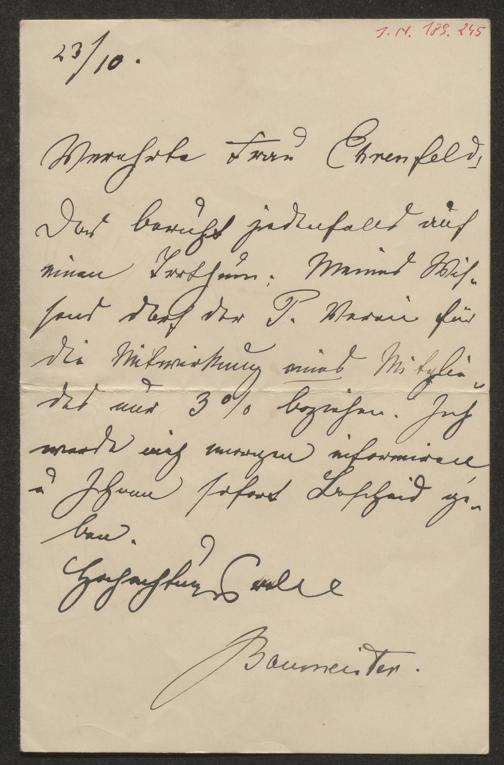 I. N. 189.245
23/10.
Verehrte Frau Ehrenfeld,
Das beruht jedenfalls auf
einem Irrthum. Meines Wis-
sens darf der P. Verein für
die Mitwirkung eines Mitglie-
des nur 3% beziehen. Ich
werde mich morgen informiren
u Ihnen sofort Bescheid ge-
ben.
Hochachtungsvoll
Baumeister.